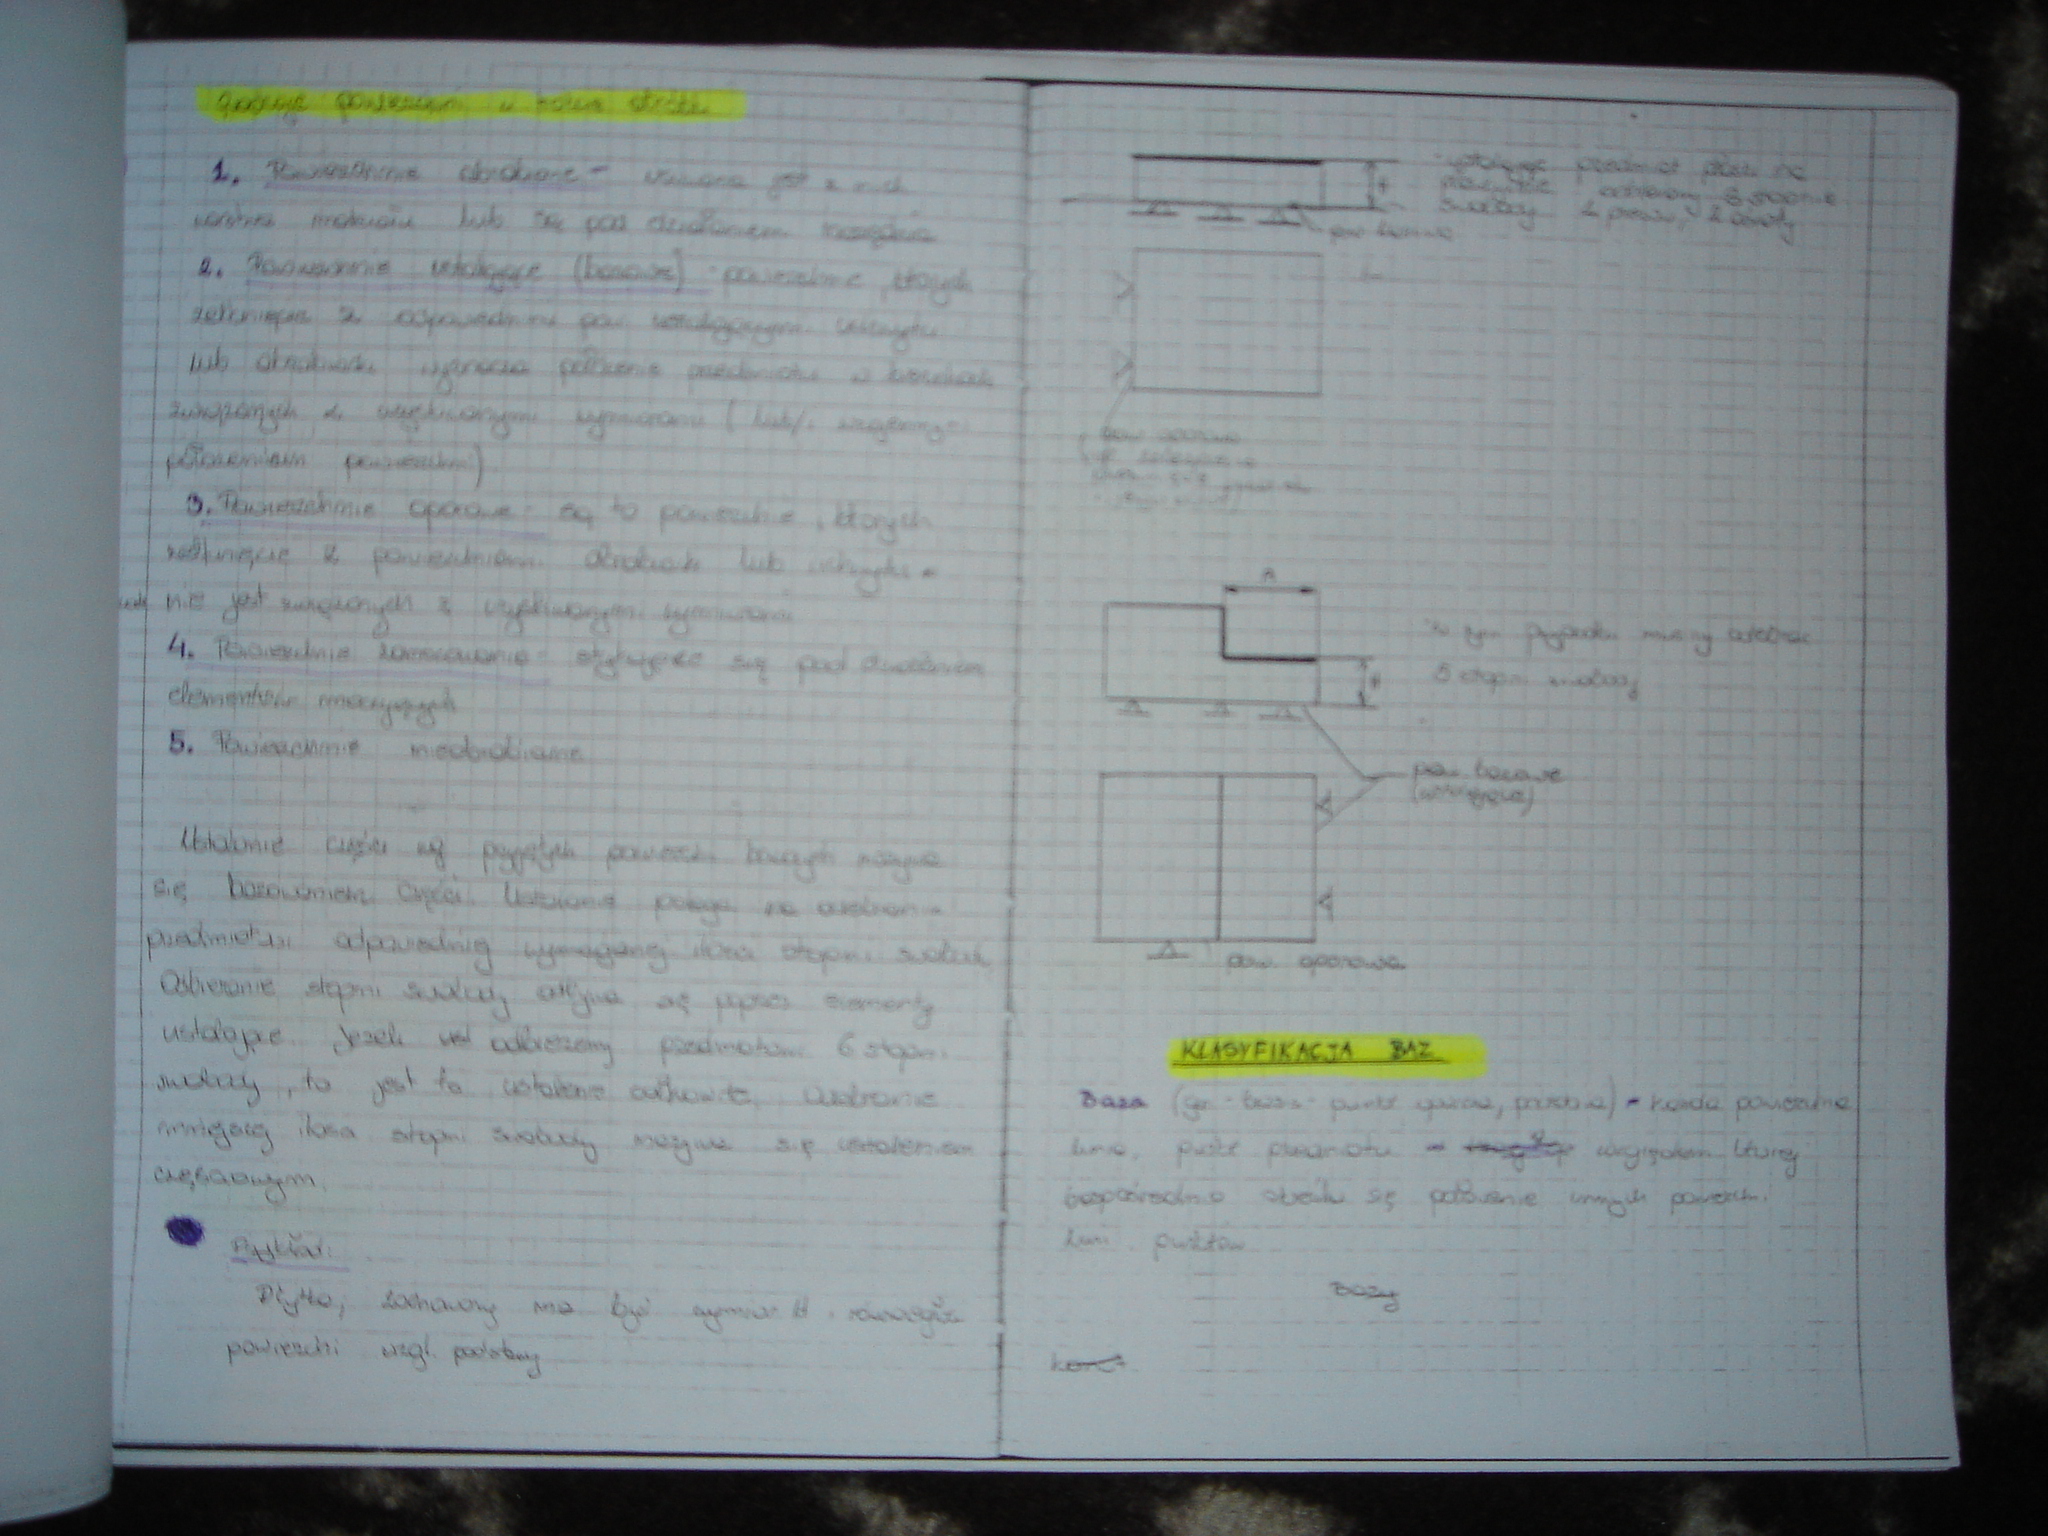 1. Powierzchnie obrabiane - usuwana jest z nich
warstwa materiału lub są pod działaniem narzędzia
2. Powierzchnie ustalające (bazowe) - powierzchnie, których
zetknięcie z odpowiednimi pow. ustalającymi uchwytu
lub obrabiarki wyznacza położenie przedmiotu w kierunkach
związanych z uzyskiwanymi wymiarami (lub/i wzajemnym
położeniem powierzchni)
3. Powierzchnie oporowe - są to powierzchnie, których
zetknięcie z powierzchniami obrabiarki lub uchwytu
nie jest związanych z uzyskiwanym wymiarami
4. Powierzchnie zamocowania - stykające się pod działaniem
elementów mocujących
5. Powierzchnie nieobrabiane
Ustalenie części wg przyjętych powierzchni bazowych nazywa
się bazowaniem części. Ustalenie polega na odebraniu
przedmiotowi odpowiedniej wymaganej ilości stopni swobody
Odbieranie stopni swobody odbywa się poprzez elementy
ustalające. Jeżeli odbierzemy przedmiotowi 6 stopni
swobody, to jest to ustalenie całkowite. Odebranie
mniejszej ilości stopni swobody nazywa się ustaleniem
częściowym.
Przykład:
Płytka, zachowany ma być wymiar H i równoległość
powierzchni wzgl. podstawy
ustalając przedmiot płaski na
płaszczyźnie odbieramy 3 stopnie
swobody 1 przesuw, 2 obroty
pow bazowa
pow. oporowa
A
W tym przypadku musimy odebrać
5 stopni swobody
pow. bazowe
(ustalające)
pow. oporowa
KLASYFIKACJA BAZ
Baza (gr - basis - punkt wyjścia, podstawa) - każda powierzchnia
linia, punkt przedmiotu względem której
bezpośrednio określa się położenie innych powierzchni
linii, punktów
Bazy